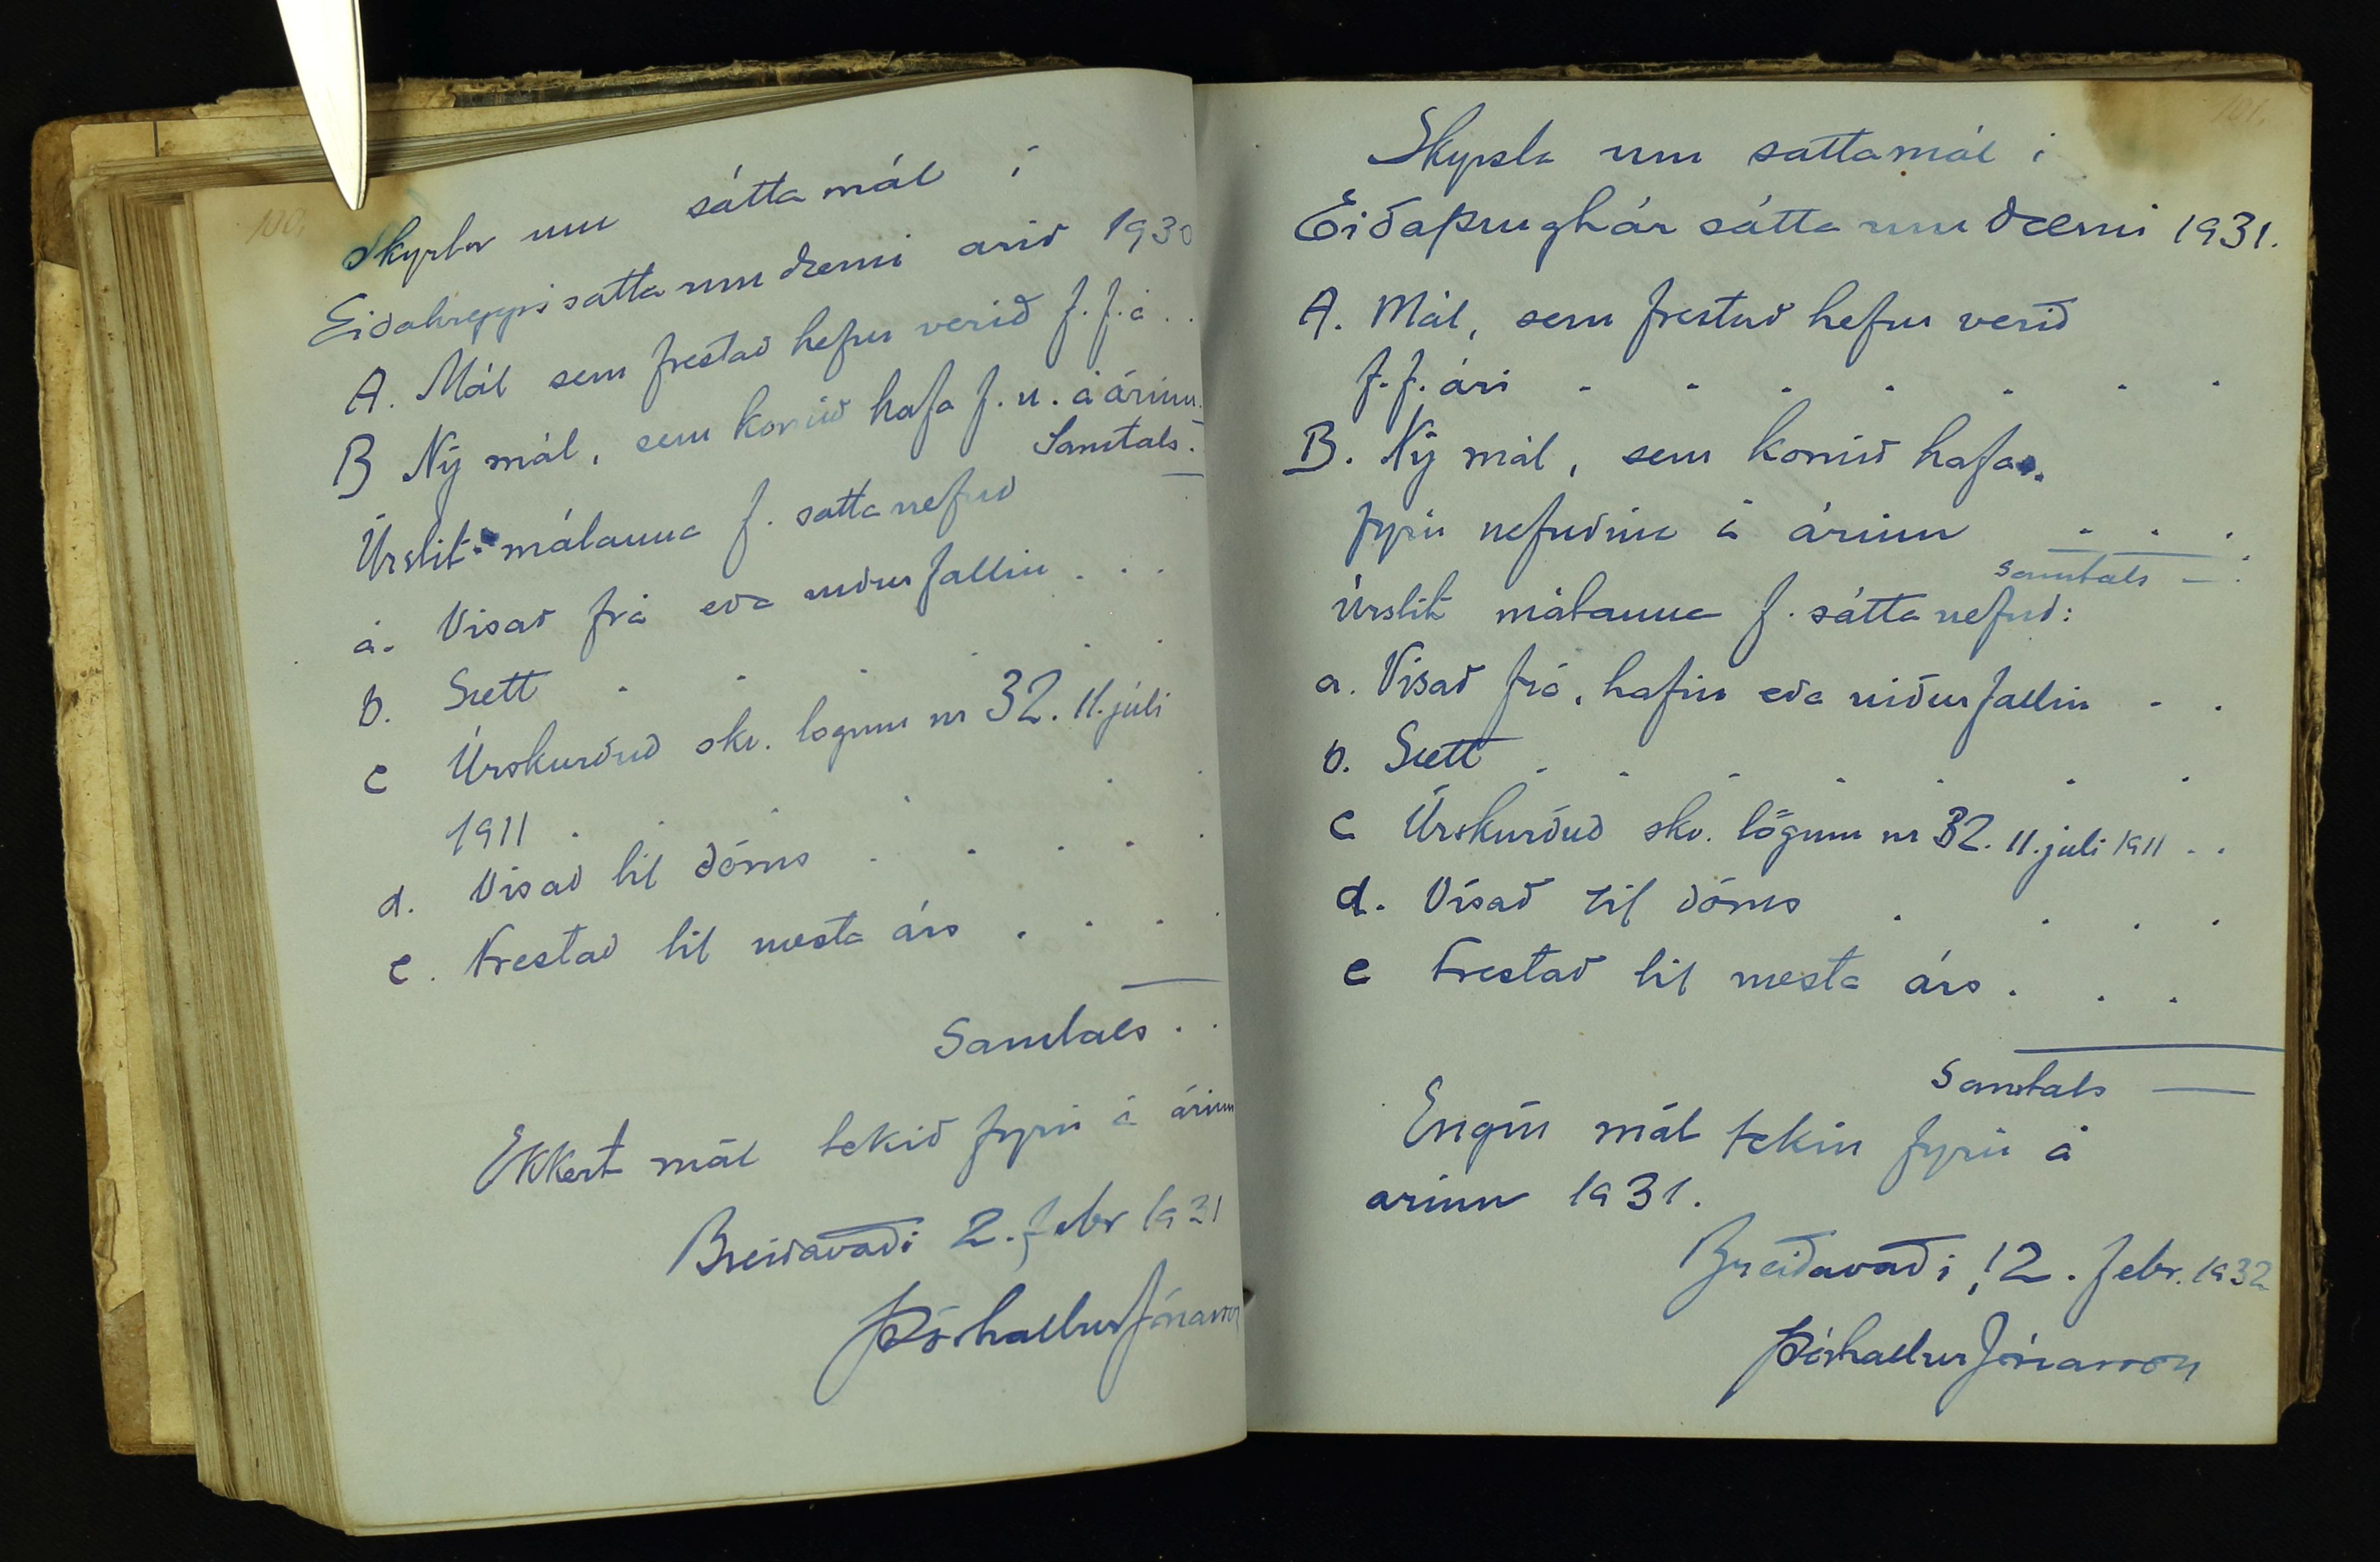 100.
Skyrsla um sátta mál í
Eiðahreppi sattaumdæmi arið 1930
A. Mál sem frestað hefur verið f. f. á . .
B Ný mál, sem komið hafa f. n. á árinu.
Samtals.
Úrslit málanna f. satta nefnd
a. Visað frá eða niðurfallin . . .
b. Sætt . . . . . .
c Úrskurðuð skv. logum nr 32. 11. júli
1911 . . . .
d. Visað til dóms . . . . .
e. Frestað til næsta árs . . . .
Samtals . .
Ekkert mál tekið fyrir á árinu
Breiðavaði 2. febr 1931
Þórhallur Jónasson
101.
Skyrsla um sattamál i
Eiðaþinghár sátta umdæmi 1931.
A. Mál, sem frestað hefur verið
f. f. ári . . . . . . .
B. Ný mál, sem komið hafa
fyrir nefndina á árinu . . .
Samtals — :
Úrslit málanna f. sátta nefnd:
a. Vísað frá, hafin eða niðurfallin . .
b. Sætt . . . . . . .
c Úrskurðuð skv. lögum nr 32. 11. júli 1911 . .
d. Vísað til dóms . . . .
e Frestað til næsta árs . . .
Samtals —
Engin mál tekin fyrir á
arinu 1931.
Breiðavaði, 12. febr. 1932
Þórhallur Jónasson